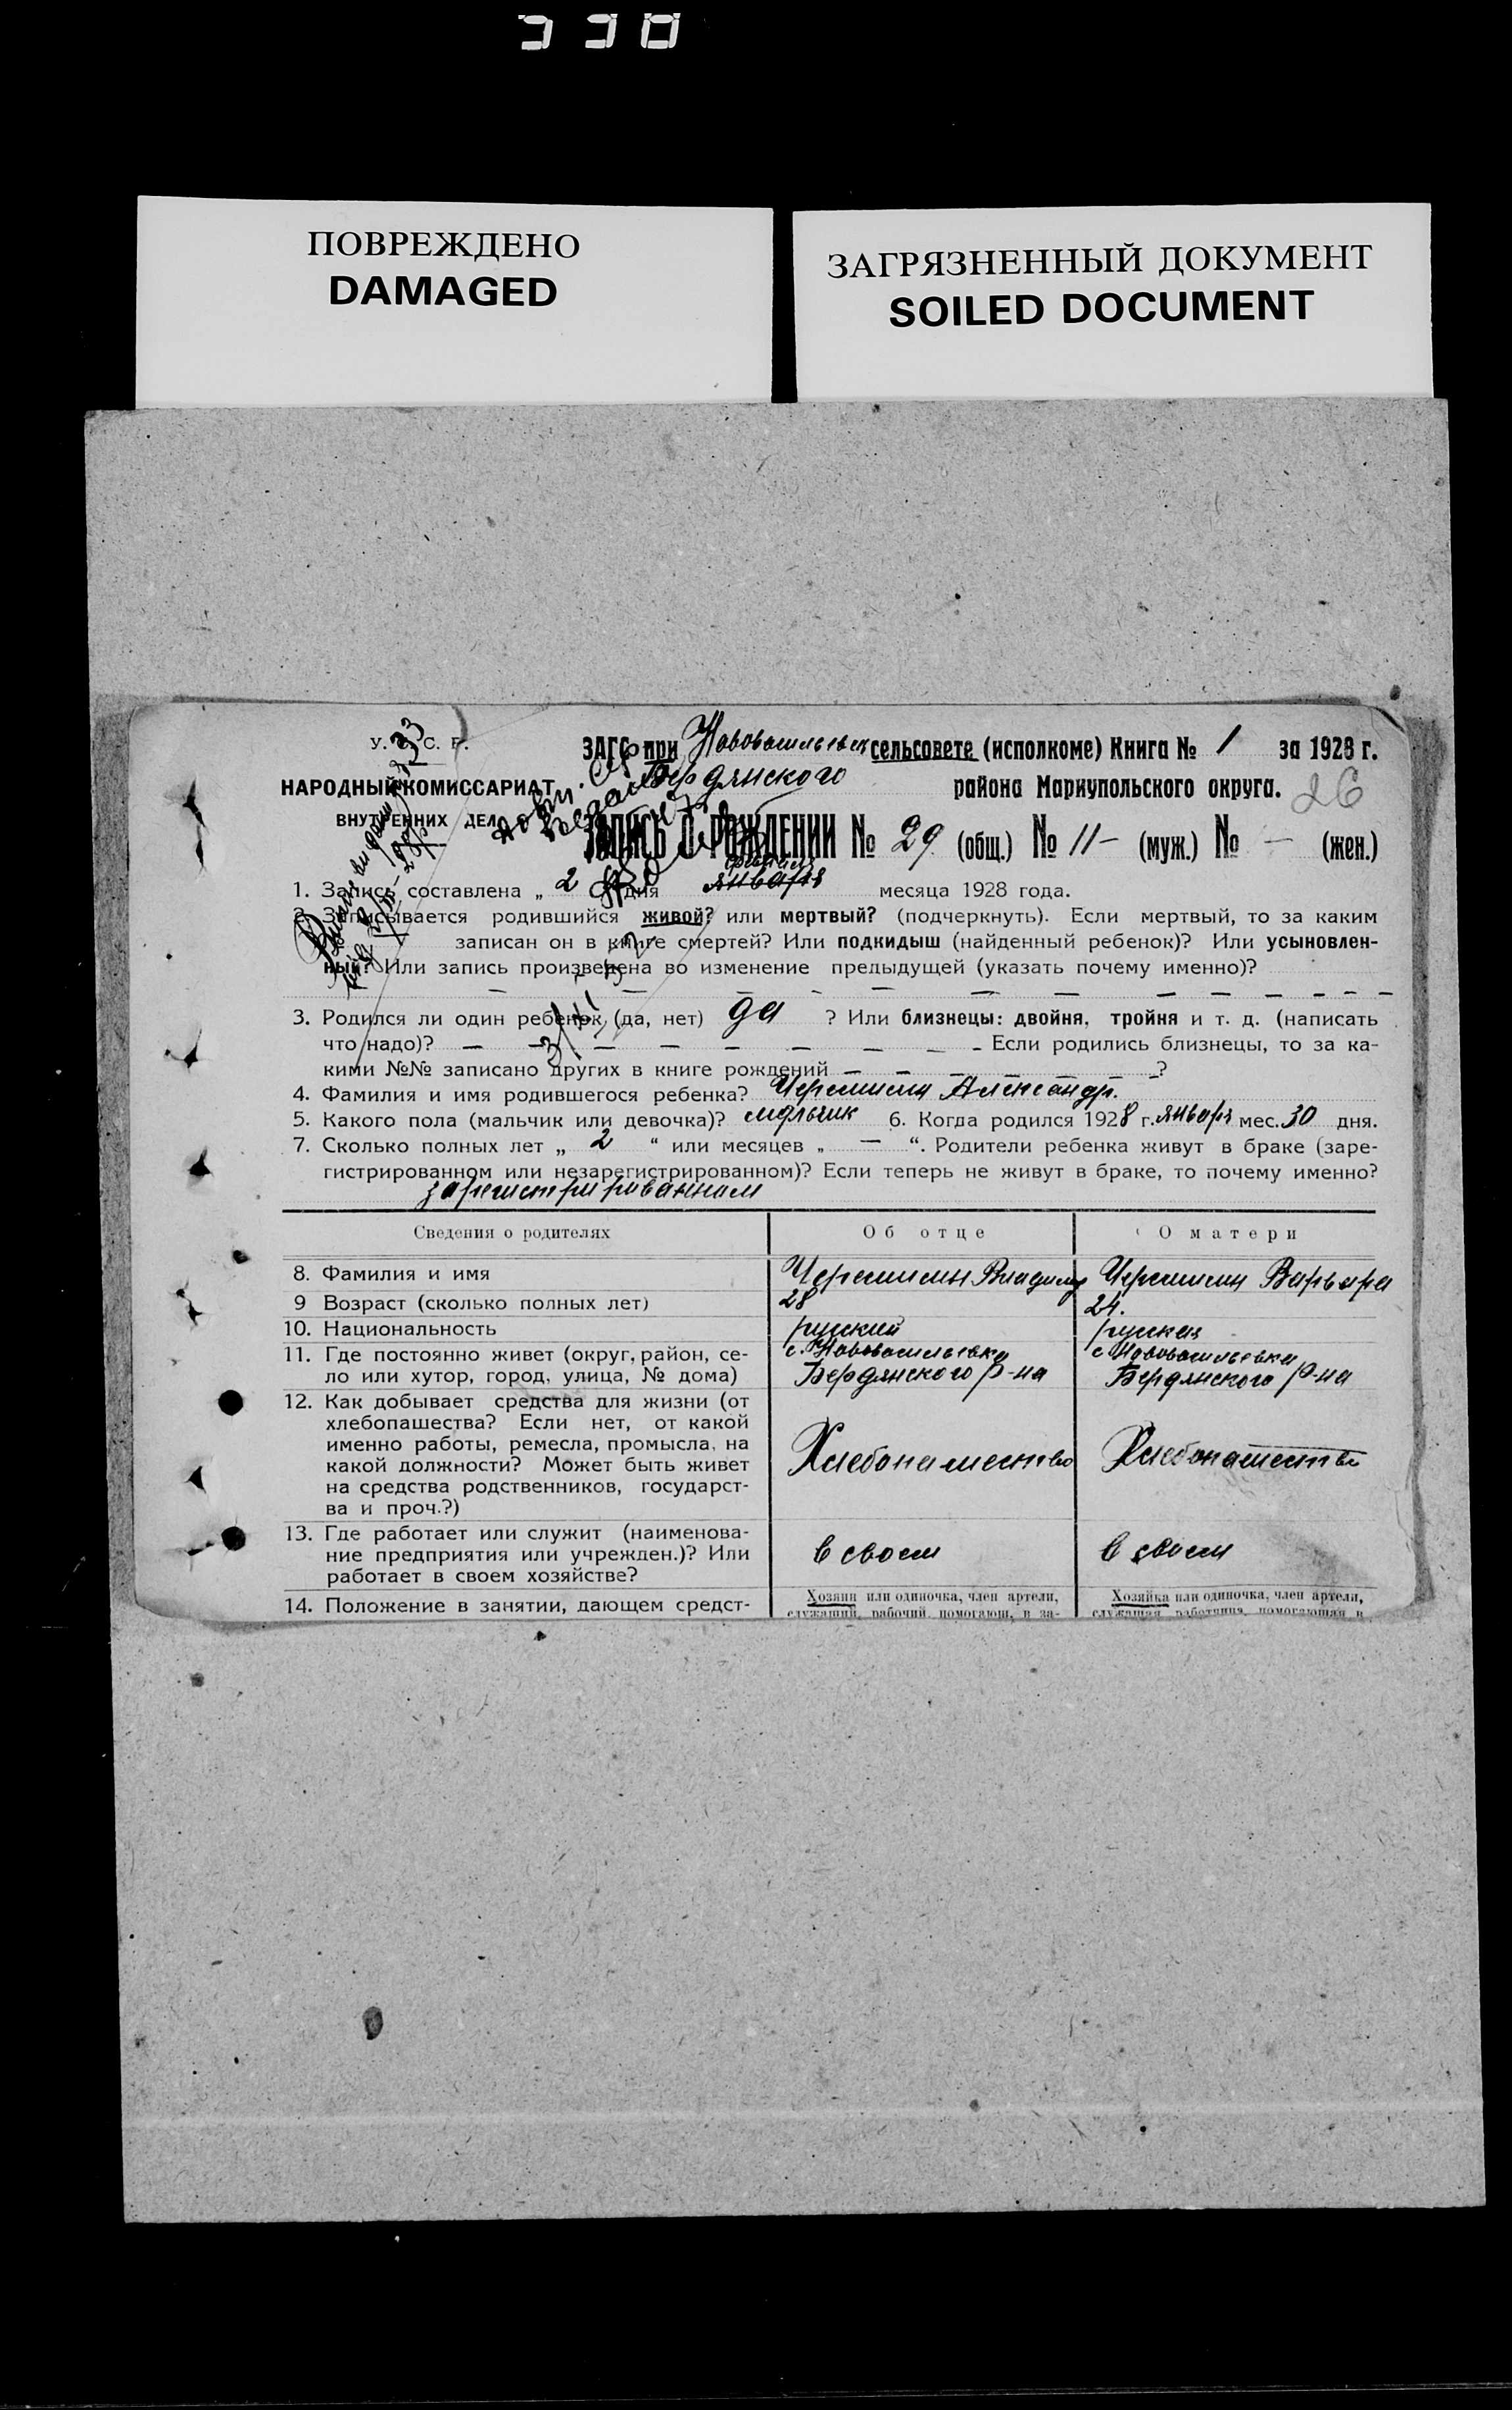 ПОВРЕЖДЕНО
DAMAGED
ЗАГРЯЗНЕННЫЙ ДОКУМЕНТ
SOILED DOCUMENT
У. С. С. Р.
НАРОДНЫЙ КОМИССАРИАТ
ВНУТРЕННИХ ДЕЛ
ЗАГС при Нововасильевск сельсовете (исполкоме) Книга № 1 за 1928 г.
Бердянского района Мариупольского округа.
26
ЗАПИСЬ О РОЖДЕНИИ № 29 (общ.) № 11- (муж.) № — (жен.)
февраля
1. Запись составлена „ 2 дня января месяца 1928 года.
2. Записывается родившийся живой? или мертвый? (подчеркнуть). Если мертвый, то за каким
записан он в книге смертей? Или подкидыш (найденный ребенок)? Или усыновлен-
ный? Или запись произведена во изменение предыдущей (указать почему именно)?
— — — — - — — — — — — — — —
3. Родился ли один ребенок (да, нет) да ? Или близнецы: двойня, тройня и т. д. (написать
что надо)? — — — — — — — — — Если родились близнецы, то за ка-
кими №№ записано других в книге рождений — — — — — — — ?
4. Фамилия и имя родившегося ребенка? Черемисин Александр.
5. Какого пола (мальчик или девочка)? мальчик 6. Когда родился 1928 г. января мес. 30 дня.
7. Сколько полных лет „ 2 “ или месяцев „ — “. Родители ребенка живут в браке (заре-
гистрированном или незарегистрированном)? Если теперь не живут в браке, то почему именно?
зарегистрированном
Сведения о родителях
Об отце
О матери
8. Фамилия и имя
Черемисин Владимир
Черемисин Варвара
9 Возраст (сколько полных лет)
28
24.
10. Национальность
русский
русская
11. Где постоянно живет (округ, район, се-
ло или хутор, город, улица, № дома)
с. Нововасильевка
Бердянского р-на
с Нововасильевка
Бердянского р-на
12. Как добывает средства для жизни (от
хлебопашества? Если нет, от какой
именно работы, ремесла, промысла, на
какой должности? Может быть живет
на средства родственников, государст-
ва и проч.?)
Хлебопашество
Хлебопашество
13. Где работает или служит (наименова-
ние предприятия или учрежден.)? Или
работает в своем хозяйстве?
в своем
в своем
14. Положение в занятии, дающем средст-
Хозяин или одиночка, член артели,
служащий, рабочий, помогающ. в за-
Хозяйка или одиночка, член артели,
служащая, работница, помогающая в